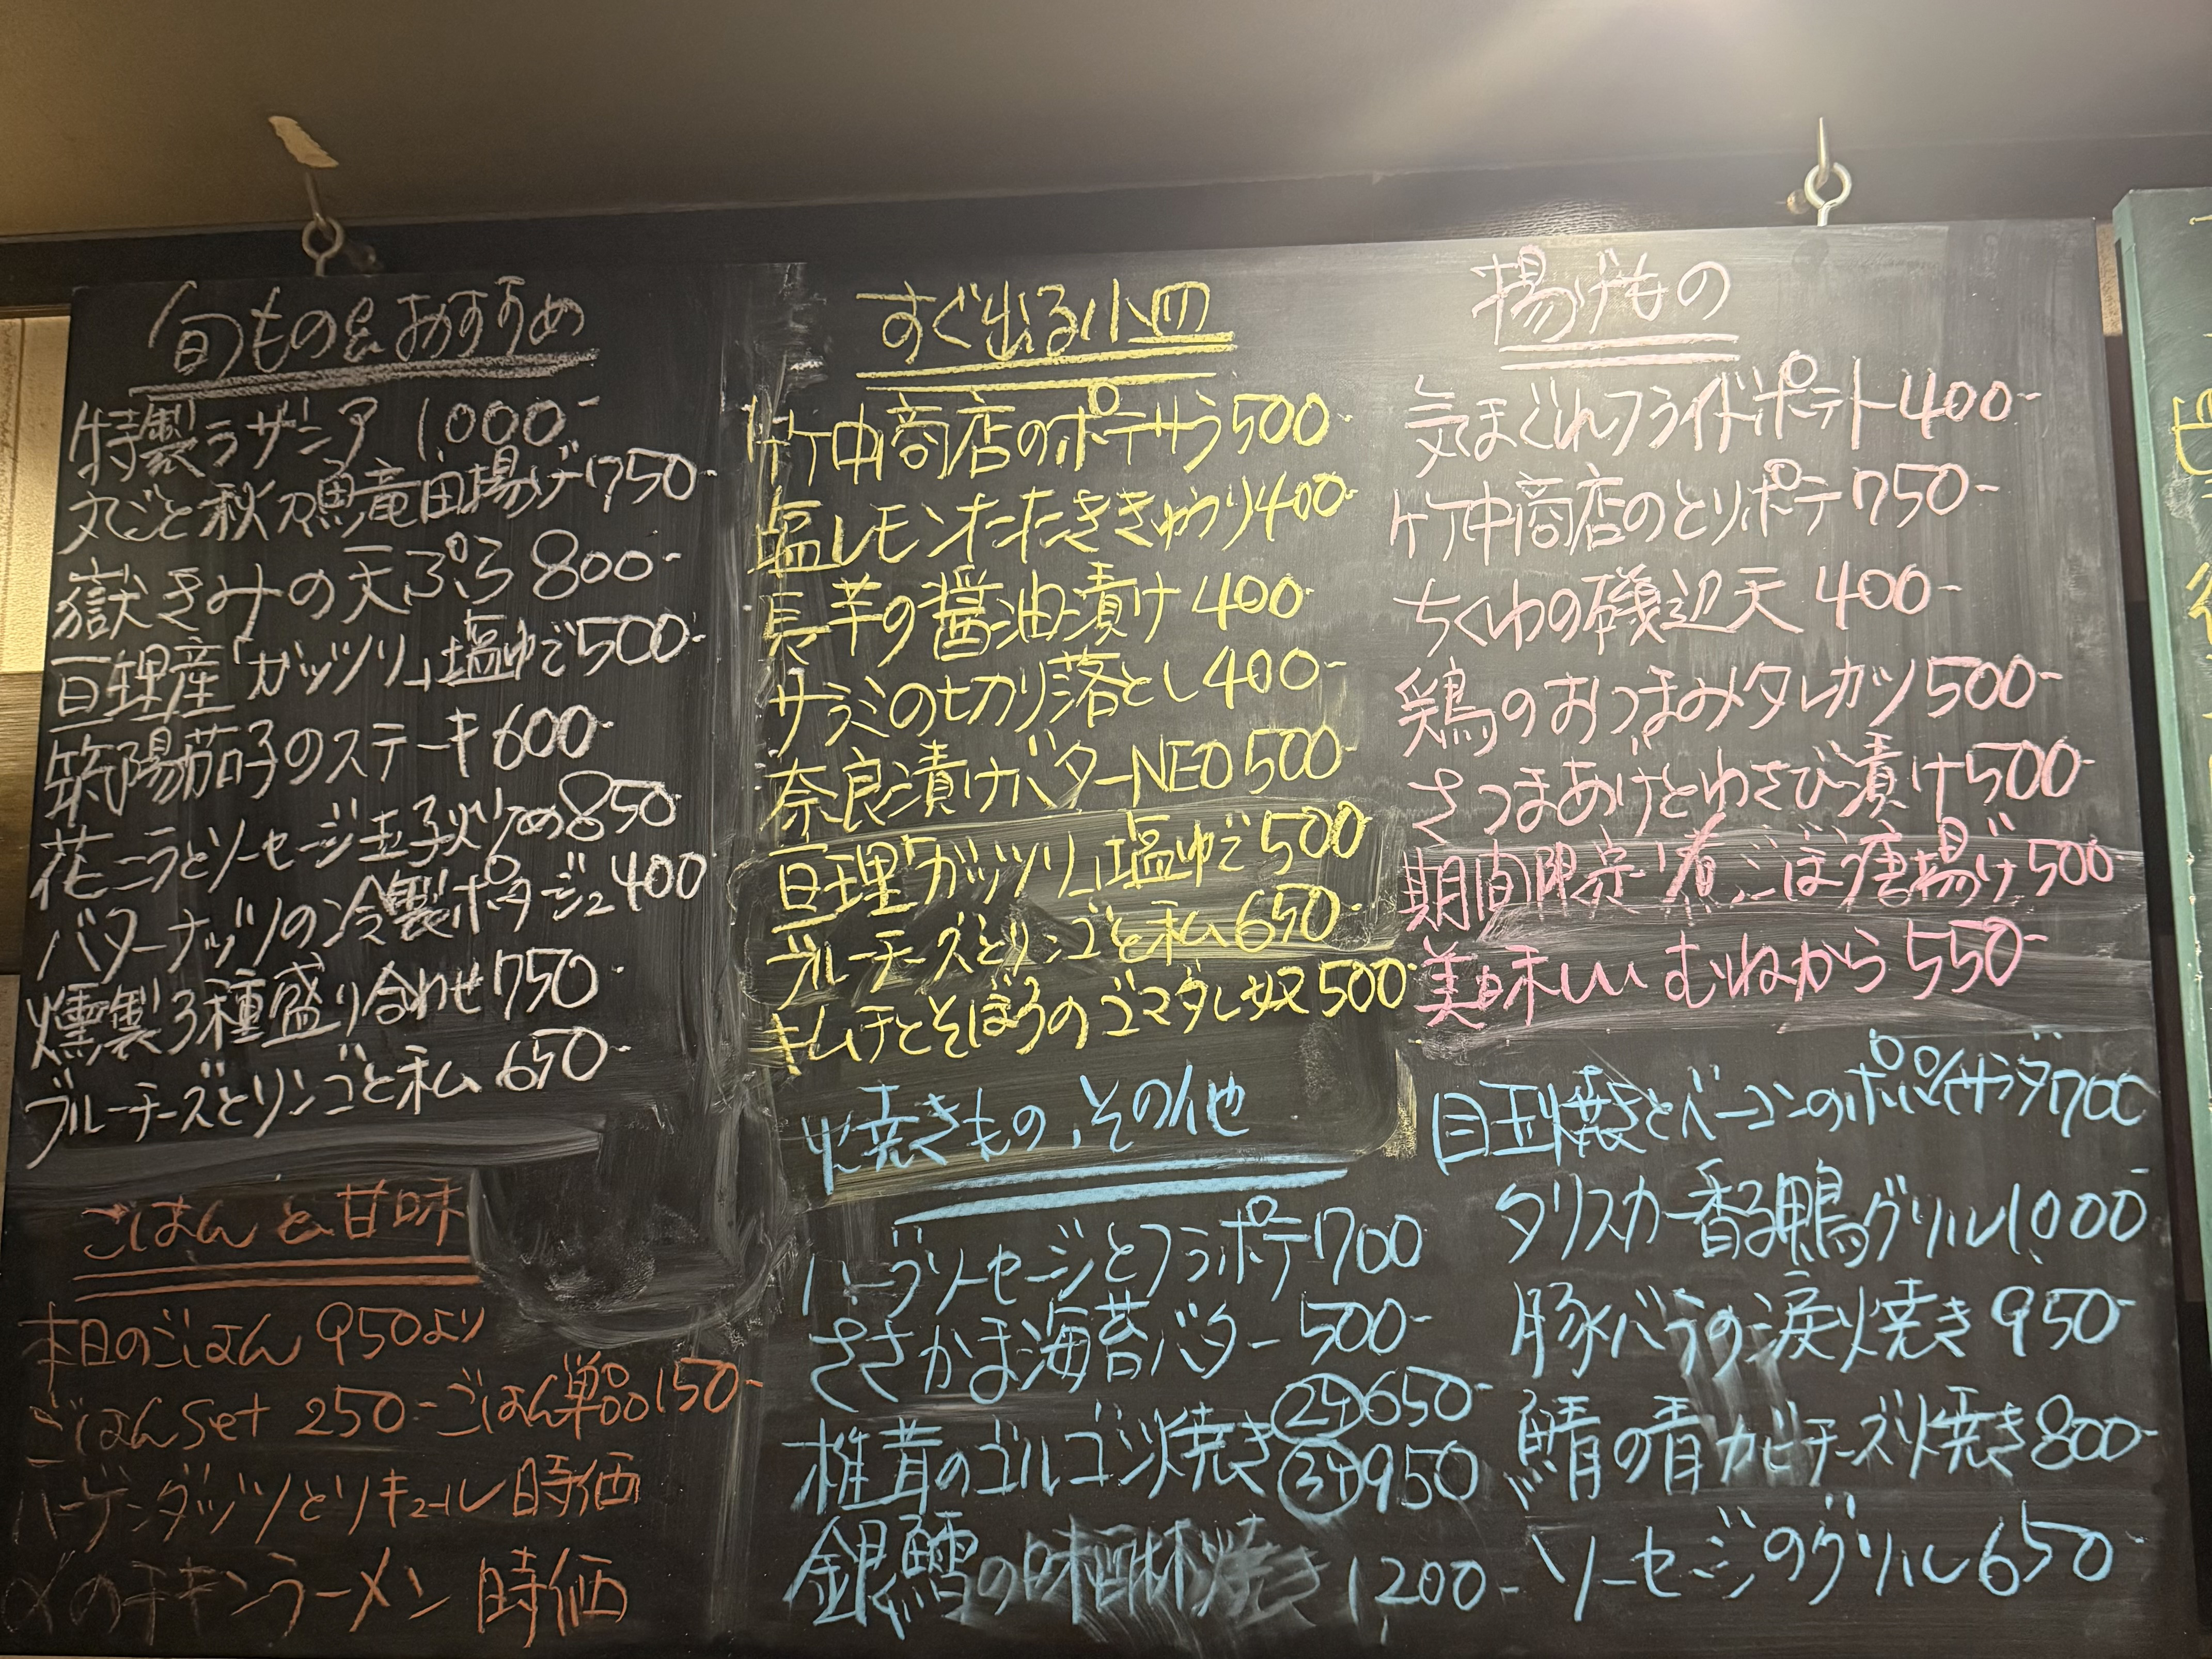 旬もの&おすすめ
特製ラザニア 1,000-
丸ごと秋刀魚竜田揚げ750-
嶽きみの天ぷら800-
亘理産「ガッツリ」塩ゆで500-
筑陽茄子のステーキ600-
花ニラとソーセージ玉子炒め850-
バターナッツの冷製ポタージュ400
燻製3種盛り合わせ750-
ブルーチーズとリンゴと私 650-
ごはんと甘味
本日のごはん 950より
ごはんset 250-ごはん単品150-
ハーゲンダッツとリキュール 時価
〆のチキンラーメン 時価
すぐ出る小皿
竹中商店のポテサラ500-
塩レモンたたききゅうり400-
長芋の醤油漬け400-
サラミの切り落とし400-
奈良漬けバターNEO500-
亘理「ガッツリ」塩ゆで500
ブルーチーズとリンゴと私650-
キムチとそぼろのゴマダレ奴500-
焼きもの、その他
ハーブソーセージとフラポテ700
ささかま海苔バター500-
椎茸のゴルゴン焼き②ケ650-
③ケ950
銀鱈の味醂焼き 1200-
揚げもの
気まぐれフライドポテト400-
竹中商店のとりポテ750-
ちくわの磯辺天 400-
鶏のおつまみタレカツ500-
さつまあげとわさび漬け500-
期間限定!煮ごぼう唐揚げ500-
美味しいむねから550-
目玉焼きとベーコンのポパイサラダ700-
タリスカー香る鴨グリル1,000
豚バラの涙焼き950-
鯖の青カビチーズ焼き800-
ソーセージのグリル650-